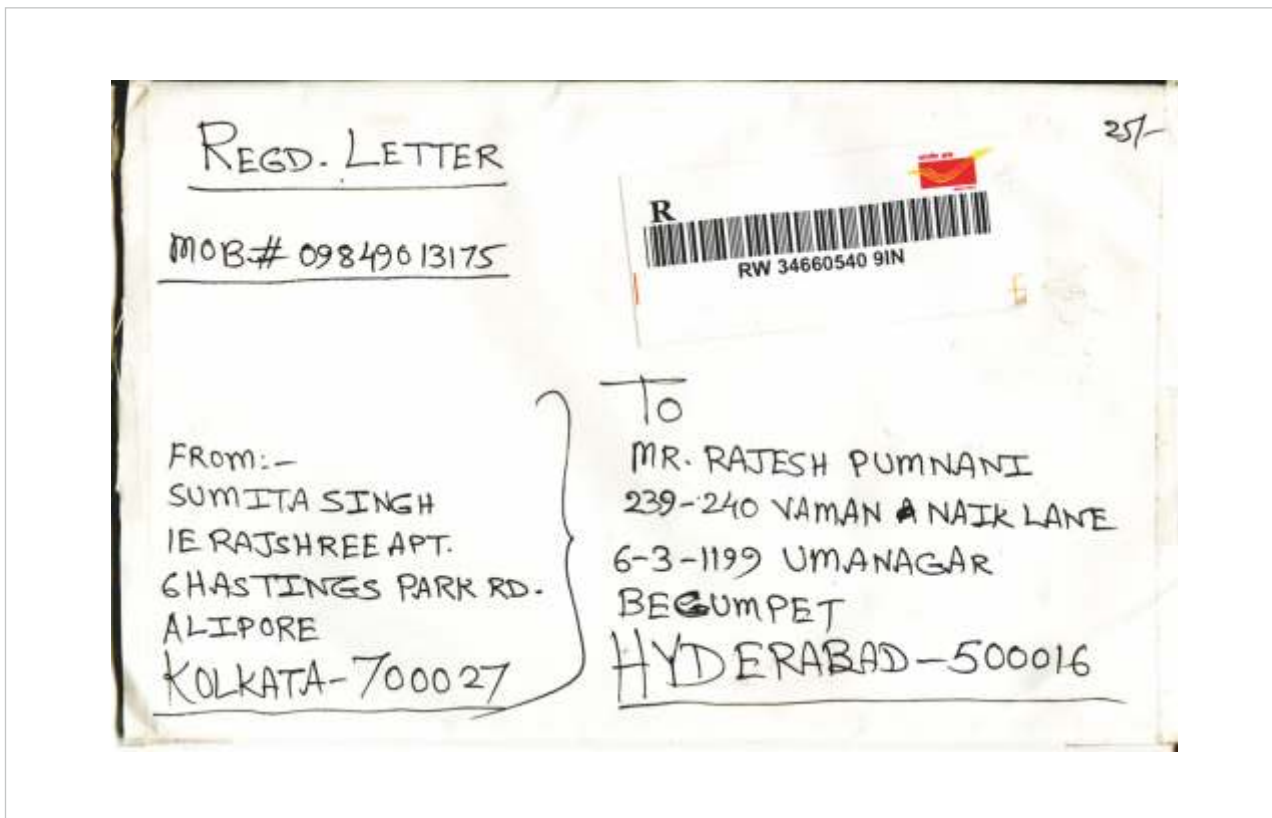 REGD. LETTER
25/-
MOB# 09849013175
R
RW 34660540 9IN
FROM:-
SUMITA SINGH
1E RAJSHREE APT.
6 HASTINGS PARK RD.
ALIPORE
KOLKATA-700027
TO
MR. RAJESH PUMNANI
239-240 VAMAN NAIK LANE
6-3-1199 UMANAGAR
BEGUMPET
HYDERABAD-500016